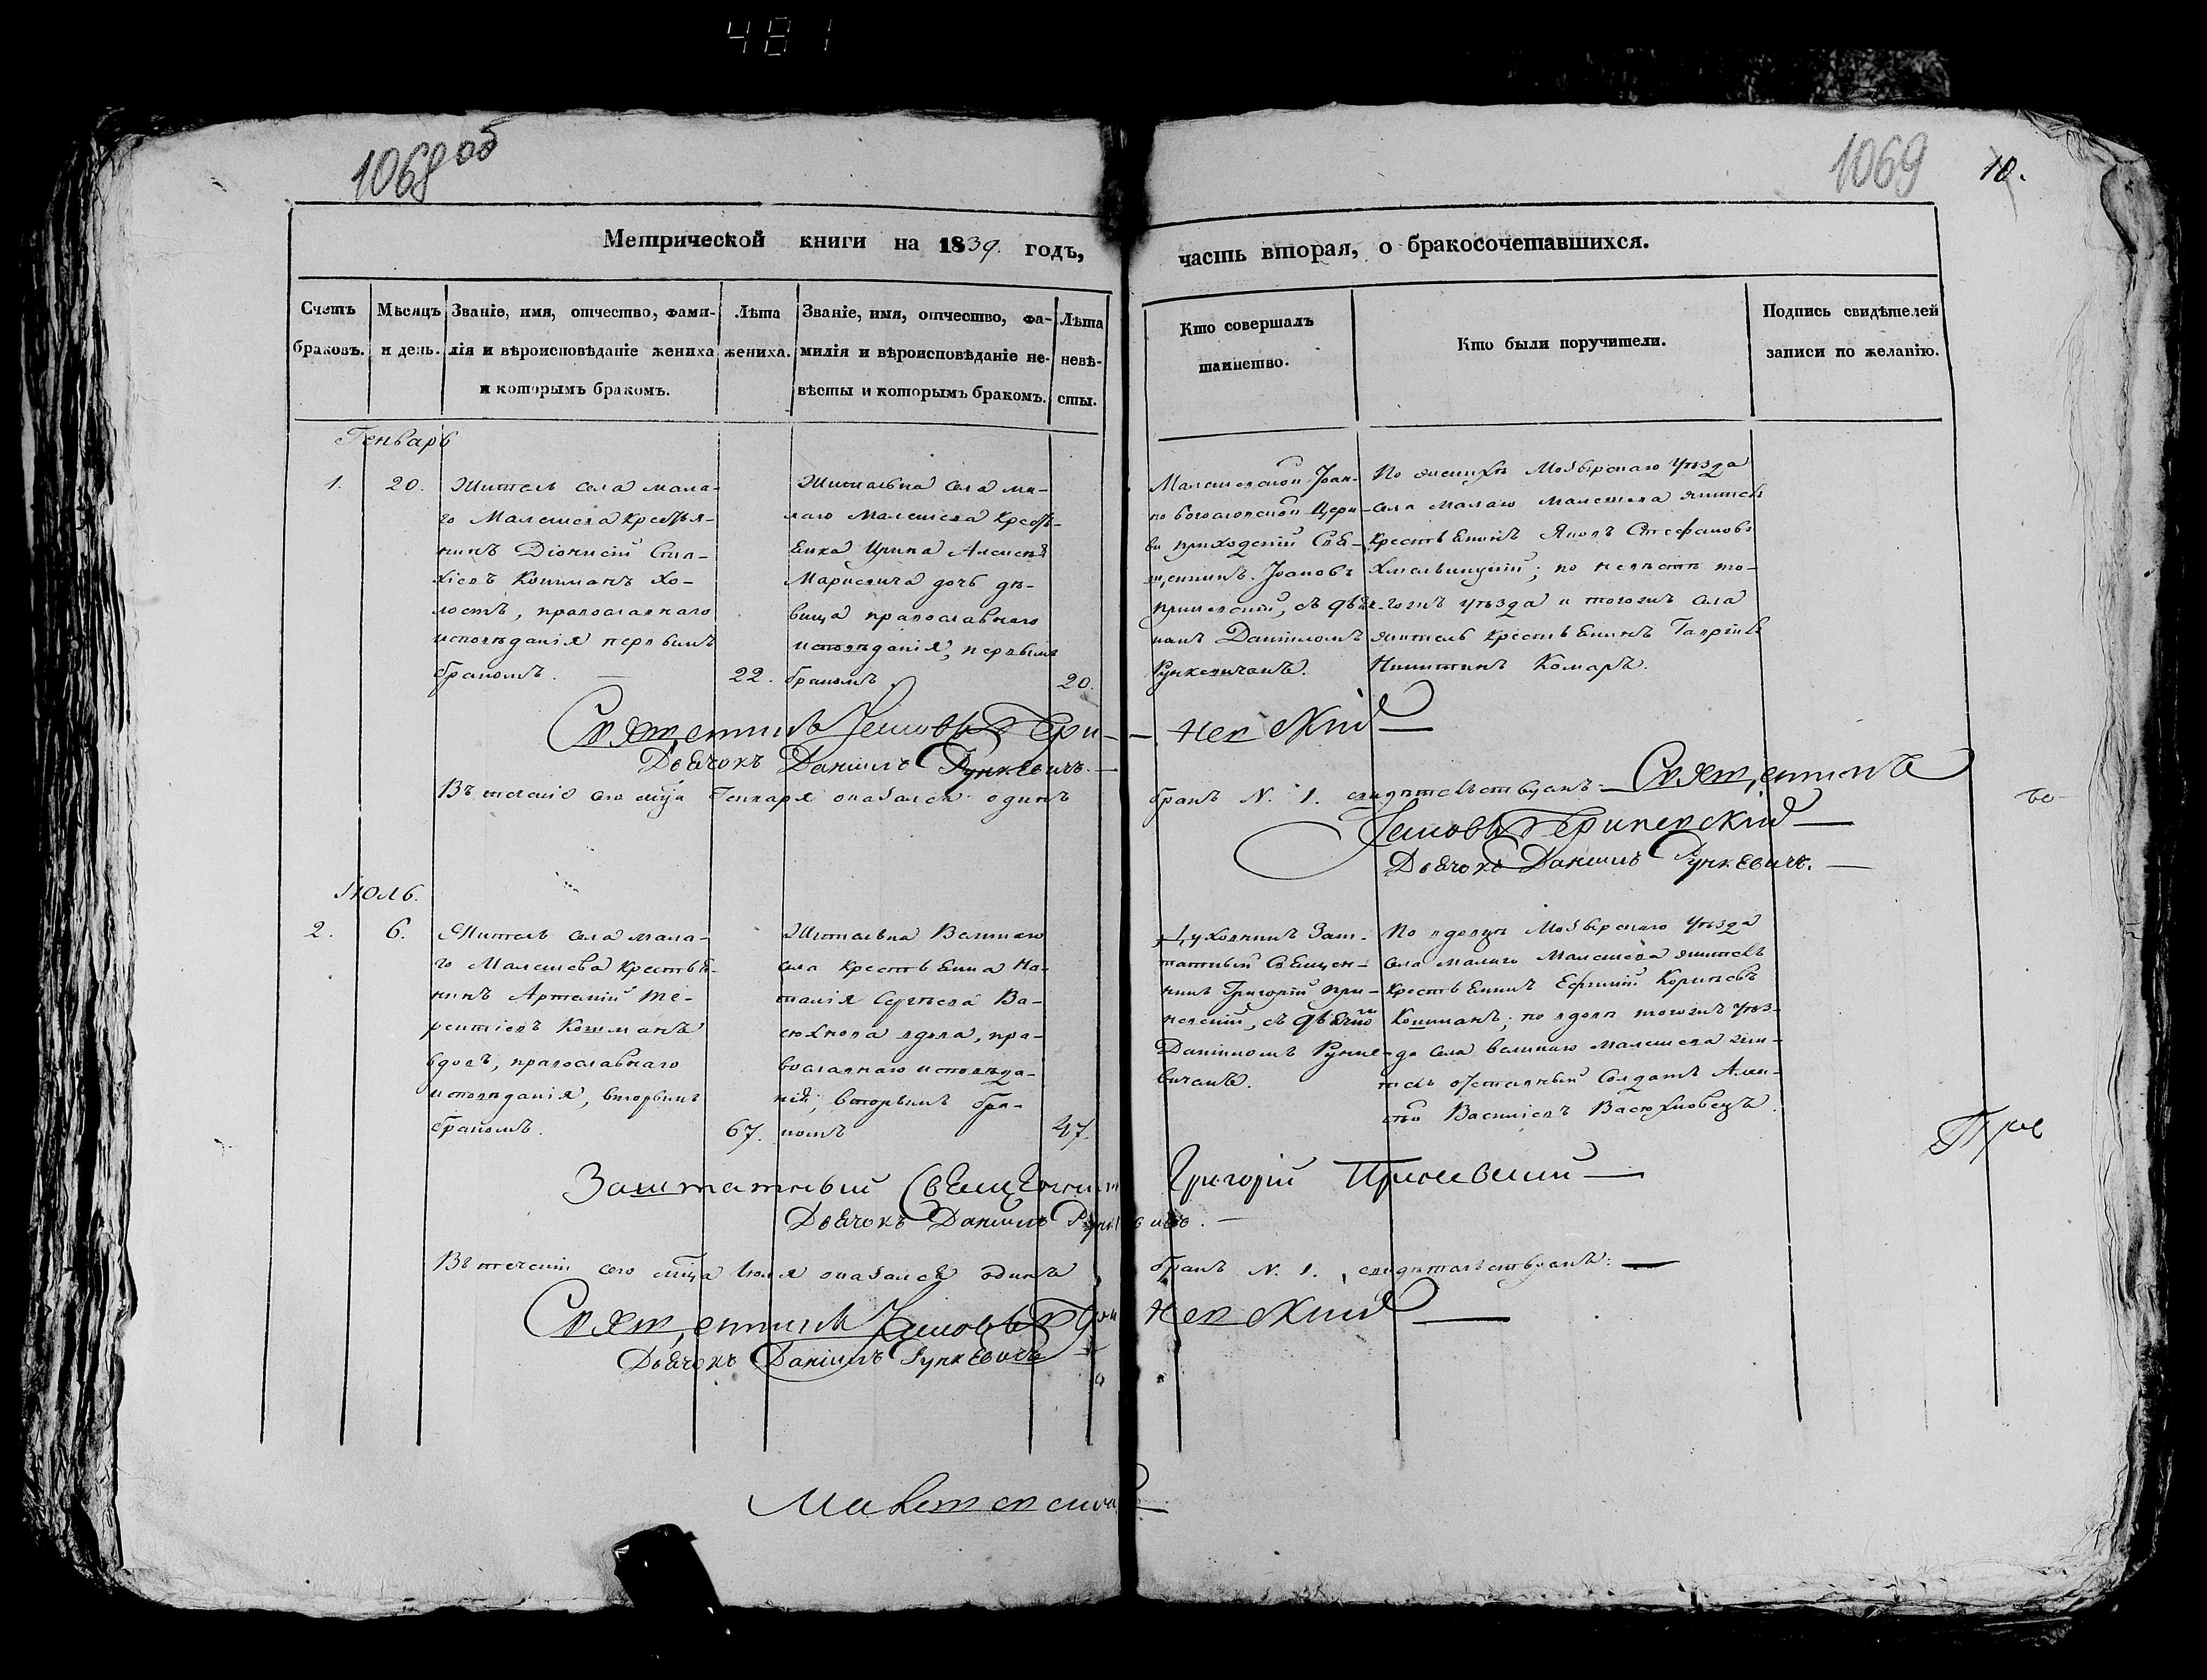 481
1068 об
1069
10.
Метрической книги на 1839. годъ,
часть вторая, о бракосочетавшихся.
Счетъ
браковъ.
Мѣсяцъ
и день.
Званіе, имя, отчество, фами-
лія и вѣроисповѣданіе жениха
и которымъ бракомъ.
Лѣта
жениха.
Званіе, имя, отчество, фа-
милія и вѣроисповѣданіе не-
вѣсты и которымъ бракомъ.
Лѣта
невѣ-
сты.
Кто совершалъ
таинство.
Кто были поручители.
Подпись свидѣтелей
записи по желанію.
Генварь
1.
20.
Житель села мала-
го Малешева крестья-
нинъ Діонисій
Кошманъ хо-
лостъ, православнаго
исповѣданія первымъ
бракомъ.
22.
Жителька села ма-
лаго Малешева крестья-
Ирина
дочь дѣ-
вица православнаго
исповѣданія, первымъ
бракомъ
20.
Малешевской Іоан-
но Богословской Церк-
ви приходскій Свя-
щенникъ
съ дьяч-
комъ Даніиломъ
Рункевичемъ.
По женихѣ Мозырскаго Уѣзда
села малаго Малешева житель
крестьянинъ Яковъ Стефановъ
по невѣстѣ то-
гожъ уѣзда и тогожъ села
житель крестьянинъ
Никитинъ Комаръ.
Священникъ
Дьячокъ Даніилъ Рункевичъ.
Въ теченіе сего мца Генваря оказался одинъ
бракъ N. 1. свидѣтельствуемъ. Священникъ
Дьячокъ Даніилъ Рункевичъ.
Іюль.
2.
6.
Житель села мала-
го Малешева крестья-
нинъ Артемій Те-
рентіевъ Кошманъ
вдовъ, православнаго
исповѣданія, вторымъ
бракомъ.
67.
Жителька Великаго
села крестьянка На-
талія Сергѣева Ва-
сюхнова вдова, пра-
вославнаго исповѣда-
нія, вторымъ бра-
комъ
47.
Духовникъ Заш-
татный Священ-
никъ Григорій При-
невскій, съ дьячкомъ
Даніиломъ Рунке-
вичемъ.
По вдовцѣ Мозырскаго Уѣзда
села малаго Малешева житель
крестьянинъ
Кошманъ; по вдовѣ тогожъ уѣз-
да села великаго Малешева жи-
тель отставный Солдатъ
Василіевъ
Заштатный Священникъ Григорій Приневский
Дьячокъ Даніилъ Рункевичъ.
Въ теченіи сего мца Іюля оказался одинъ
бракъ N. 1. свидѣтельствуемъ:
Священникъ
Дьячокъ Даніилъ Рункевичъ